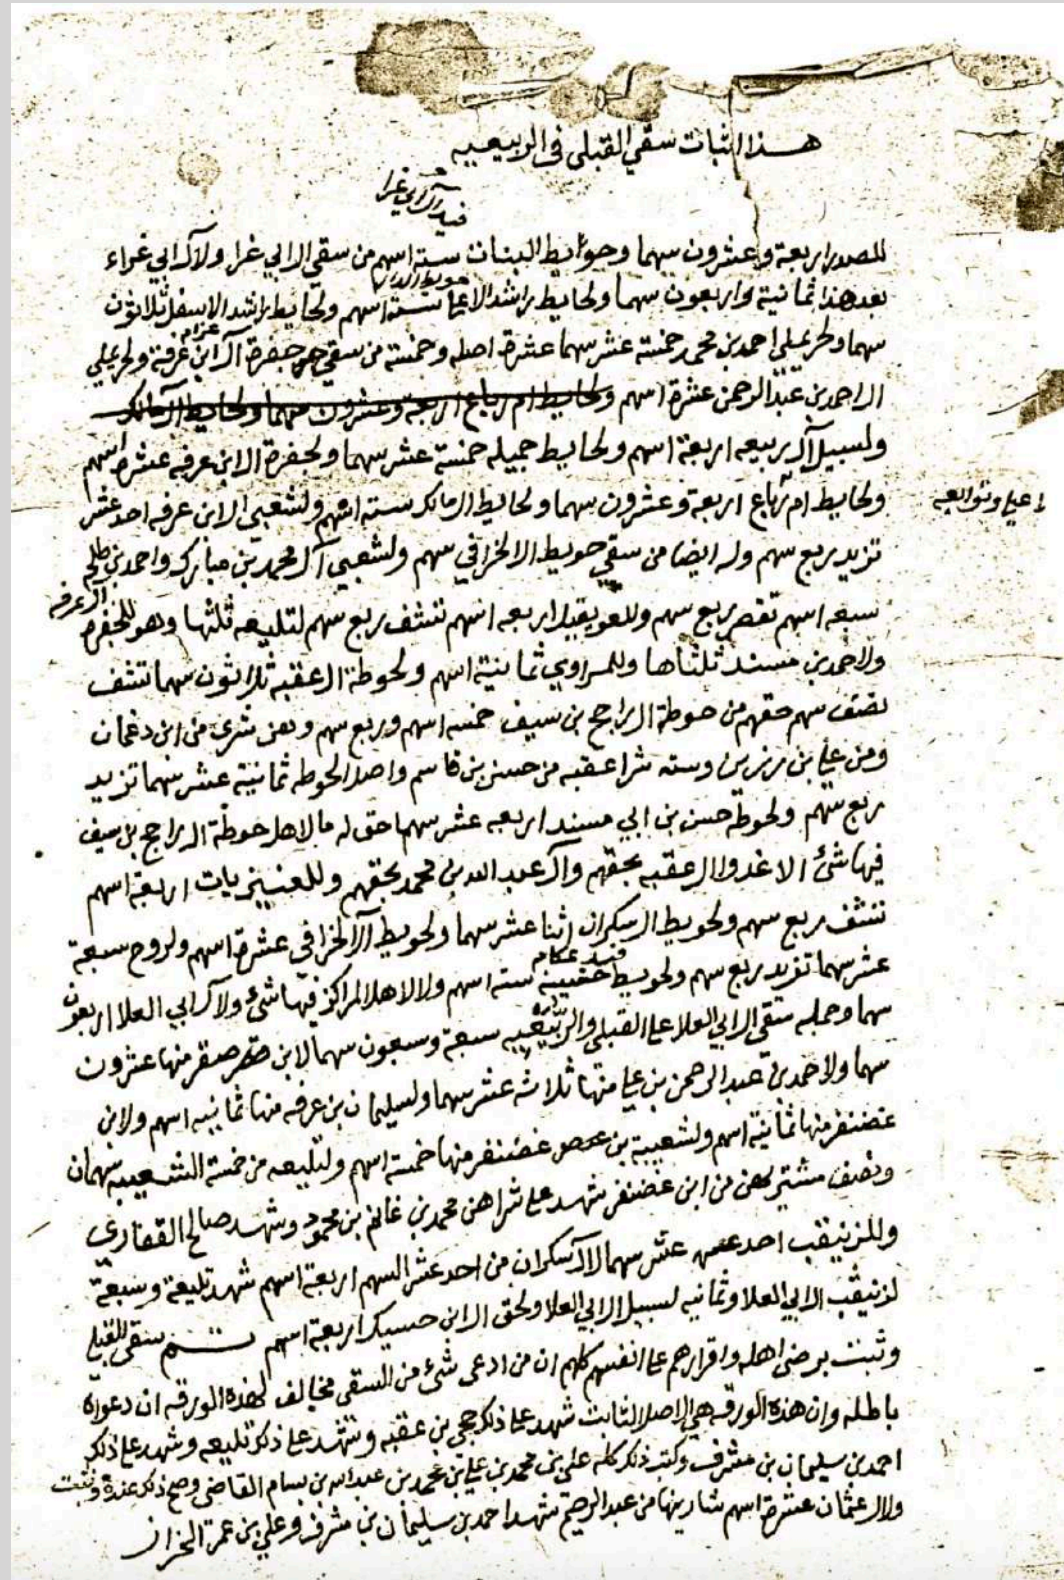 هذا اثبات سقي القبلي في الربيعيه
فيد آل ابي غرا
للصدر اربعة وعشرون سهما وحوايط البنات ستة اسهم من سقي ال ابي غرا ولآل ابي غراء
بعد هذا ثمانية واربعون سهما ولحايط راشد الاعلا ستة اسهم ولحايط راشد الاسفل ثلاثون
سهما ولحريملي احمد بن محمد خمسة عشر سهما عشرة اصله وخمسة من سقي جفرة آل ابن عرفة ولحريملي
ال احمد بن عبد الرحمن عشرة اسهم ولحايط ام رباع اربعة وعشرون سهما ولحايط آل مانك
ولسبيل آل ربيعه اربعة اسهم ولحايط جميله خمسة عشر سهما ولجفرة ال ابن عرفه عشرة اسهم
ولحايط ام رباع اربعة وعشرون سهما ولحايط ال مانك ستة اسهم ولشعيبي ال ابن عرفه احد عشر
اعلي وتوابعه
تزيد ربع سهم وله ايضا من سقي حويط ال الخرافي سهم ولشعيبي آل محمد بن مبارك واحمد بن
سبعه اسهم تنقص ربع سهم وللعويقيل اربعه اسهم تنثف ربع سهم لتليعه ثلثها وهو للجفرة
ال عرفه
ولاحمد بن مسند ثلثاها وللمراوي ثمانية اسهم ولحوطة ال عقبه ثلاثون سهما تنثف
نصف سهم حقهم من حوطة ال راجح بن سيف خمسه اسهم وربع سهم وبعض شري من ابن دغمان
ومن علي بن وسته شرا عقبه من حسن بن قاسم واصل الحوطه ثمانية عشر سهما تزيد
ربع سهم ولحوطة حسن بن ابي مسند اربعه عشر سهما حق له ما لاهل حوطة ال راجح بن سيف
فيها شئ الا غدوا ال عقبه بحقهم وآل عبد الله بن محمد بحقهم وللعنيزيات اربعة اسهم
تنثف ربع سهم ولحويط ال سكران اثنا عشر سهما ولحويط آل الخرافي عشرة اسهم ولروح سبعة
عشر سهما تزيد ربع سهم ولحويط ستة اسهم ولا لاهل المراكز فيها شئ ولآل ابي العلا اربعون
سهما وجمله سقي ال ابي العلا على القبلي والربيعيه سبعة وسبعون سهما لابن صقر منها عشرون
سهما ولاحمد بن عبد الرحمن بن علي منها ثلاثه عشر سهما ولسليمان بن عرفه منها ثمانيه اسهم ولابن
غضنفر منها ثمانية اسهم ولشعيبة بن غضنفر منها خمسة اسهم ولتليعه من خمسة الشعيبه سهمان
ونصف مشتريهن من ابن غضنفر شهد على شراهن محمد بن غانم بن محمود وشهد صالح القفاري
وللزنيقب احد عشر سهما لآل سكران من احد عشر السهم اربعة اسهم شهد تليعة وسبعة
لزنيقب ال ابي العلا وثمانيه لسبيل ال ابي العلا ولحق ال ابن حسيك اربعة اسهم تم سقي القبلي
وثبت برضى اهله واقرارهم على انفسهم كلهم ان من ادعى شئ من السقي مخالف لهذه الورقه ان دعواه
باطله وان هذه الورقه هي الاصل الثابت شهد على ذلك حجي بن عقبه وشهد على ذلك تليعه وشهد على ذلك
احمد بن سليمان بن مشرف وكتب ذلك كله علي بن محمد بن علي بن محمد بن عبد الله بن بسام القاضي وصح ذلك عنده وثبت
ولال عثمان عشرة اسهم شارينها من عبد الرحيم شهد احمد بن سليمان بن مشرف وعلي بن عمرة الخراز